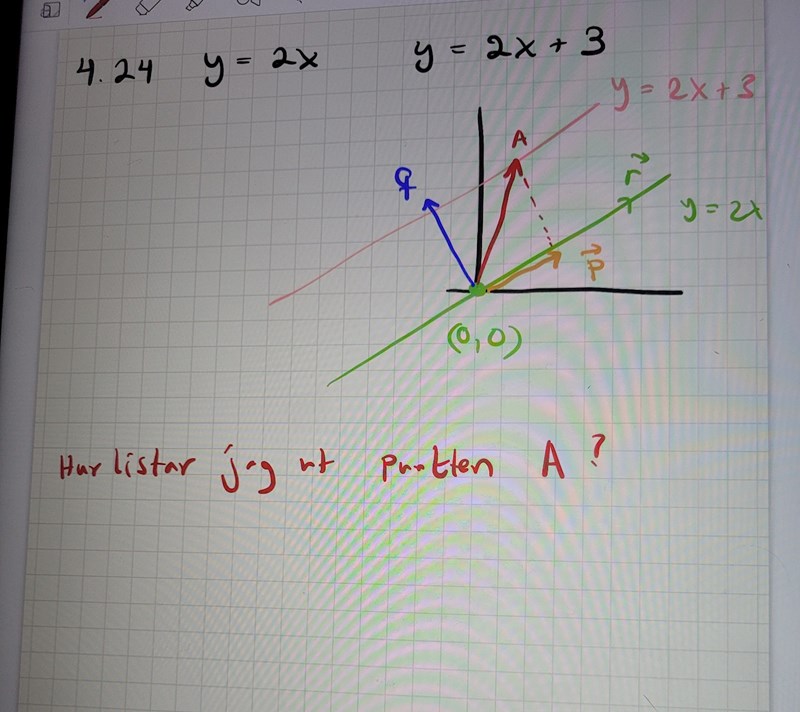 4.24 y = 2x y = 2x + 3
y = 2x + 3
A
q
r
y = 2x
p
(0,0)
Hur listar jag ut punkten A?